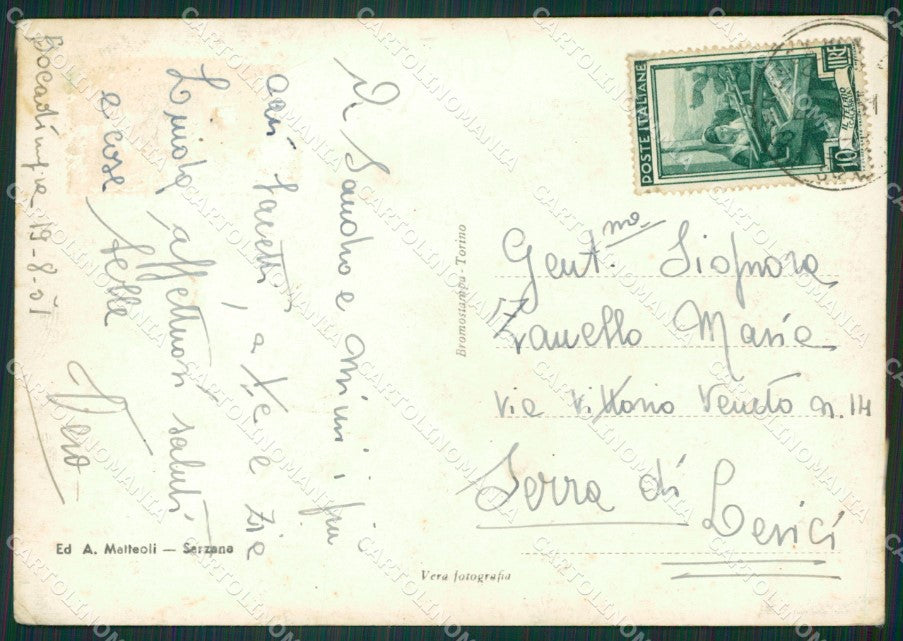 Bocadimagra 19-8-51
A Sandro e Mimi, i più
cari saluti, a te e zie
Luisa affettuosi saluti
e cose belle
Vera
Gent.ma Signora
Zanello Maria
Via Vittorio Veneto n. 14
Serra di
Lerici
POSTE ITALIANE
10
LIRE
Bromostampa - Torino
Ed A. Matteoli — Sarzana
Vera fotografia
CARTOLINOMANIA